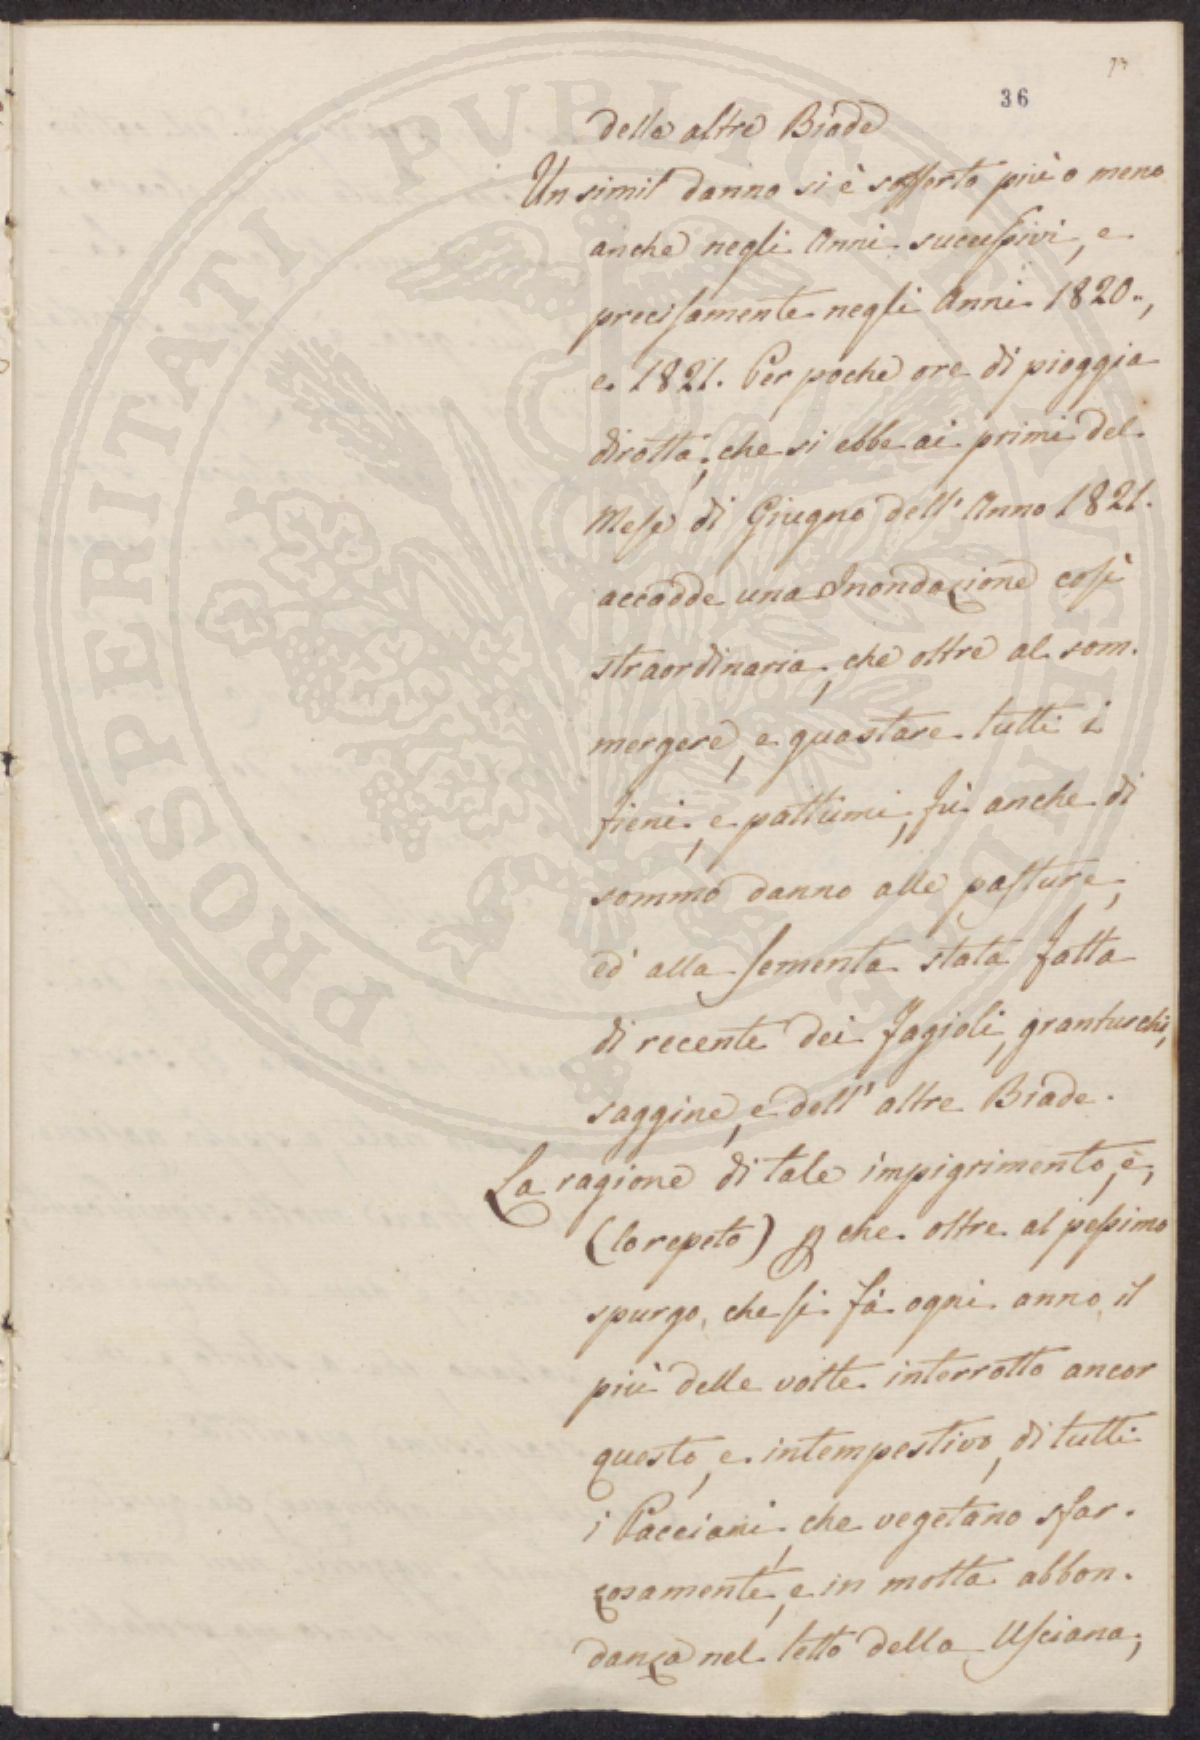 36
delle altre Biade
Un simil danno si è sofferto più o meno
anche negli Anni successivi, e
precisamente negli Anni 1820.,
e 1821. Per poche ore di pioggia
dirotta, che si ebbe ai primi del
Mese di Giugno dell' Anno 1821.
accadde una Inondazione così
straordinaria, che oltre al som.
mergere, e guastare tutti i
fieni, e pattumi, fù anche di
sommo danno alle pasture,
ed alla sementa stata fatta
di recente dei fagioli, granturchi,
saggine, e dell' altre Biade.
La ragione di tale impigrimento, è,
(lo repeto) che oltre al pessimo
spurgo, che si fà ogni anno, il
più delle volte interrotto ancor
questo, e intempestivo, di tutti
i Pacciani, che vegetano sfar.
zosamente, e in molta abbon.
danza nel letto della Usciana,
PROSPERITATI PUBLICAE AUGENDAE